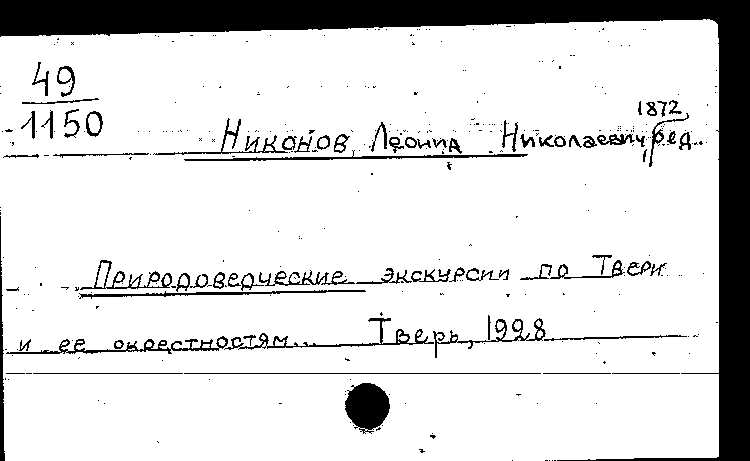 49
1150
1872,
Никонов, Леонид Николаевич, ред.
Природоведческие экскурсии по Твери
и ее окрестностям... Тверь, 1928